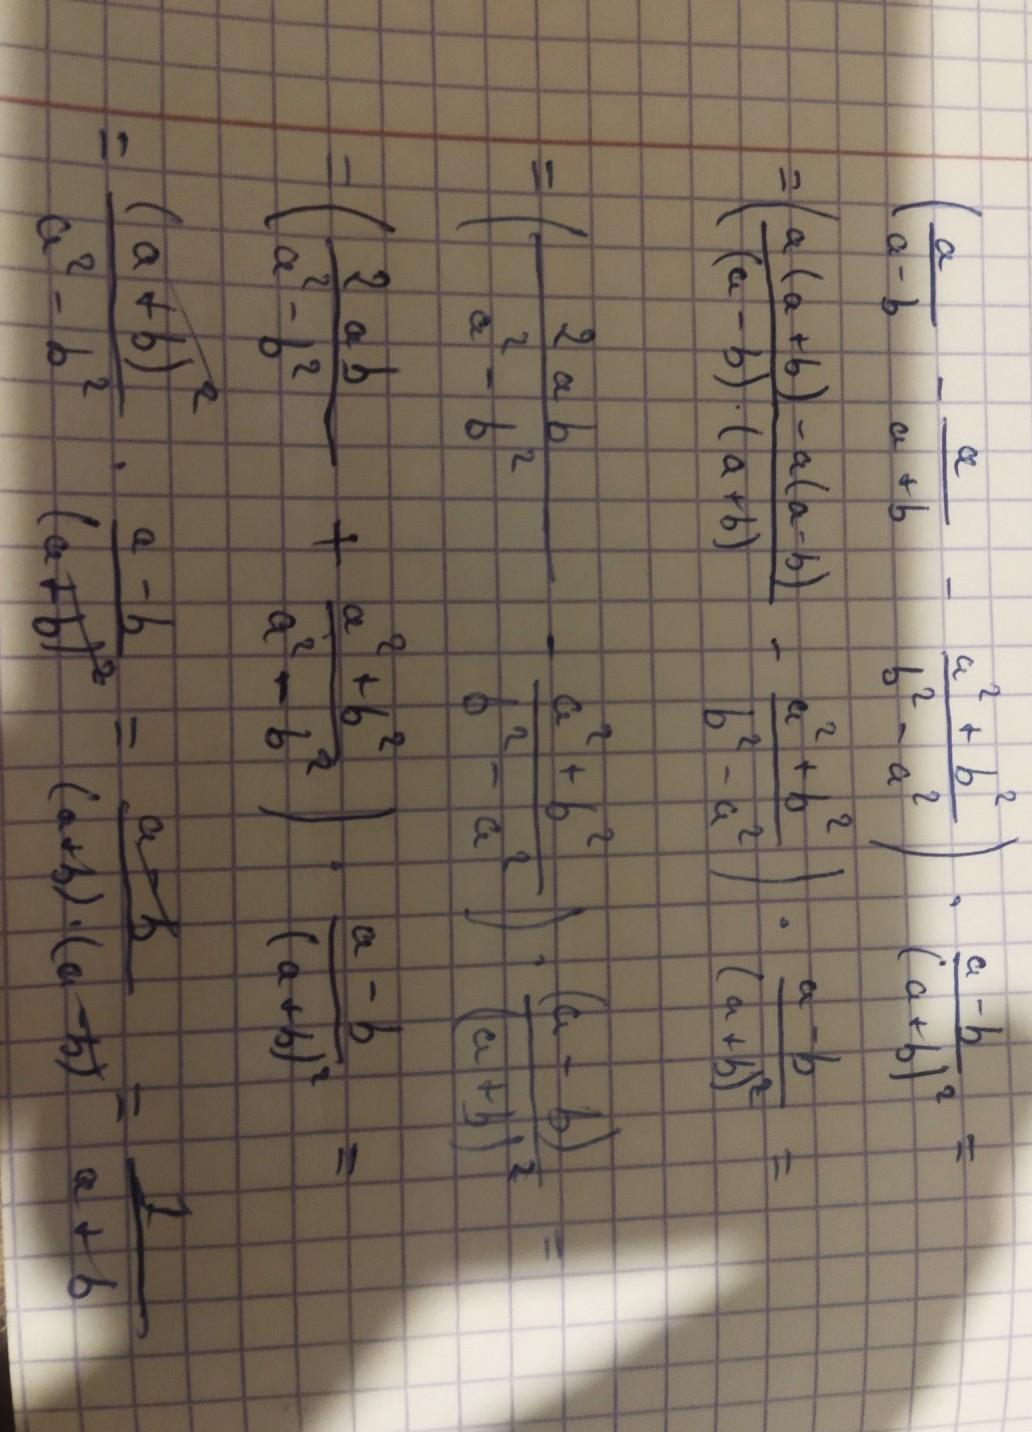 (a/(a-b) - a/(a+b) - (a²+b²)/(b²-a²)) · (a-b)/(a+b)² =
= ((a(a+b)-a(a-b))/((a-b)·(a+b)) - (a²+b²)/(b²-a²)) · (a-b)/(a+b)² =
= (2ab/(a²-b²) - (a²+b²)/(b²-a²)) · (a-b)/(a+b)² =
= (2ab/(a²-b²) + (a²+b²)/(a²-b²)) · (a-b)/(a+b)² =
= (a+b)²/(a²-b²) · (a-b)/(a+b)² = (a-b)/((a+b)·(a-b)) = 1/(a+b)